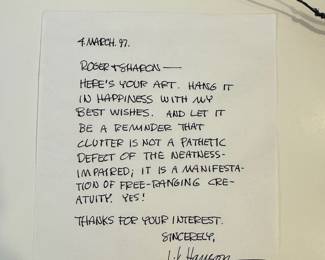 4. MARCH. 97.
ROGER + SHARON —
HERE'S YOUR ART. HANG IT
IN HAPPINESS WITH MY
BEST WISHES. AND LET IT
BE A REMINDER THAT
CLUTTER IS NOT A PATHETIC
DEFECT OF THE NEATNESS-
IMPAIRED; IT IS A MANIFESTA-
TION OF FREE-RANGING CRE-
ATIVITY. YES!
THANKS FOR YOUR INTEREST.
SINCERELY,